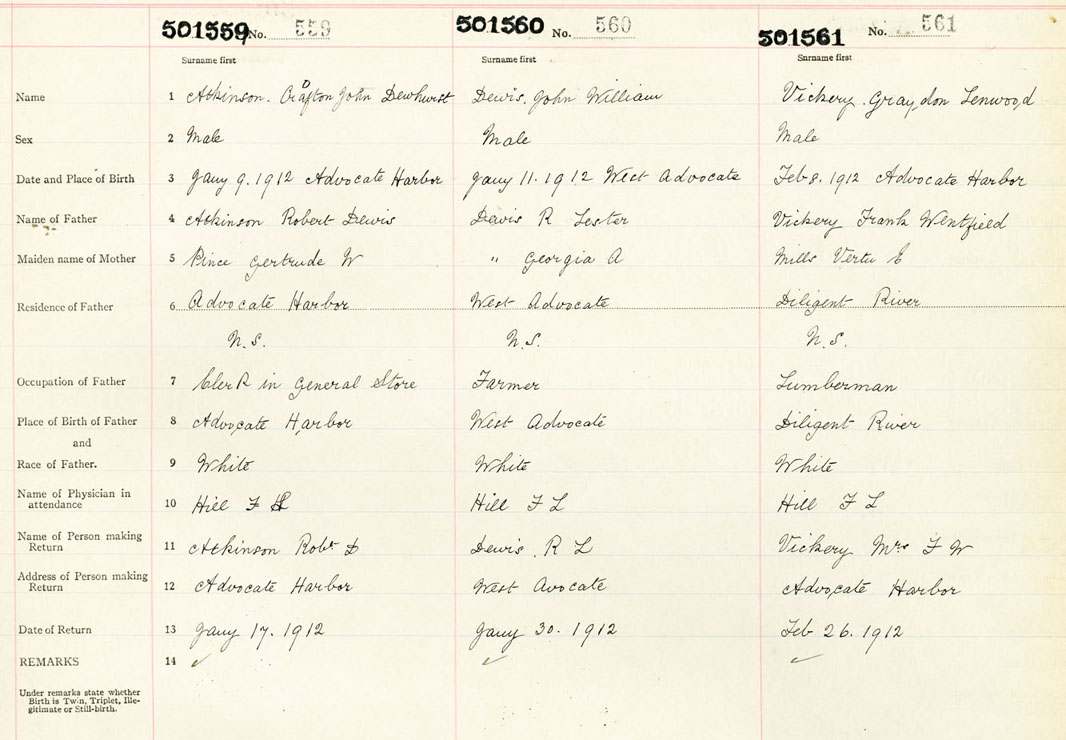 501559 No. 559 501560 No. 560 501561 No. 561
Surname first Surname first Surname first
Name 1 Atkinson. Crafton John Dewhurst Dewis. John William Vickery. Graydon Lenwood
Sex 2 Male Male Male
Date and Place of Birth 3 Jany 9. 1912 Advocate Harbor Jany 11. 1912 West Advocate Feb 8. 1912 Advocate Harbor
Name of Father 4 Atkinson Robert Dewis Dewis R Lester Vickery Frank Wentfield
Maiden name of Mother 5 Pince Gertrude W " Georgia A Mills Verta E
Residence of Father 6 Advocate Harbor West Advocate Diligent River
N.S. N.S. N.S.
Occupation of Father 7 Clerk in General Store Farmer Lumberman
Place of Birth of Father 8 Advocate Harbor West Advocate Diligent River
and
Race of Father. 9 White White White
Name of Physician in
attendance 10 Hill F L Hill F L Hill F L
Name of Person making
Return 11 Atkinson Robt D Dewis. R L Vickery Mrs F W
Address of Person making
Return 12 Advocate Harbor West Avocate Advocate Harbor
Date of Return 13 Jany 17. 1912 Jany 30. 1912 Feb 26. 1912
REMARKS 14 ✓ ✓ ✓
Under remarks state whether
Birth is Twin, Triplet, Ille-
gitimate or Still-birth.